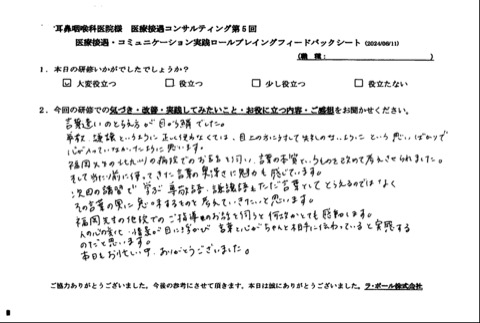 耳鼻咽喉科医院様　医療接遇コンサルティング第５回
医療接遇・コミュニケーション実践ロールプレイングフィードバックシート（2024/06/11）
（職種：　　　　　　）
１．本日の研修いかがでしたでしょうか？
☑ 大変役立つ　□ 役立つ　□ 少し役立つ　□ 役立たない
２．今回の研修での気づき・改善・実践してみたいこと・お役に立つ内容・ご感想をお聞かせください。
言葉遣いのとらえ方が目から鱗でした。
敬語、謙譲というように正しく使わなくては、目上の方に対して失礼のないように という思いばかりで
心が入っていなかったように思います。
福岡先生の北九州の病院でのお話を伺い、言葉の本質というものを改めて考えさせられました。
そして当たり前に使ってきた言葉の奥深さに魅力も感じています。
次回の講習で学ぶ尊敬語・謙譲語もただ言葉としてとらえるのではなく
その言葉の奥に意味するものを考えていきたいと思います。
福岡先生の他院でのご指導のお話を伺うと何故かとても感動します。
人の心の変化・情景が目に浮かび 言葉と心がちゃんと相手に伝わっていると実感する
のだと思います。
本日もお忙しい中、ありがとうございました。
ご協力ありがとうございました。今後の参考にさせて頂きます。本日は誠にありがとうございました。ラ・ポール株式会社